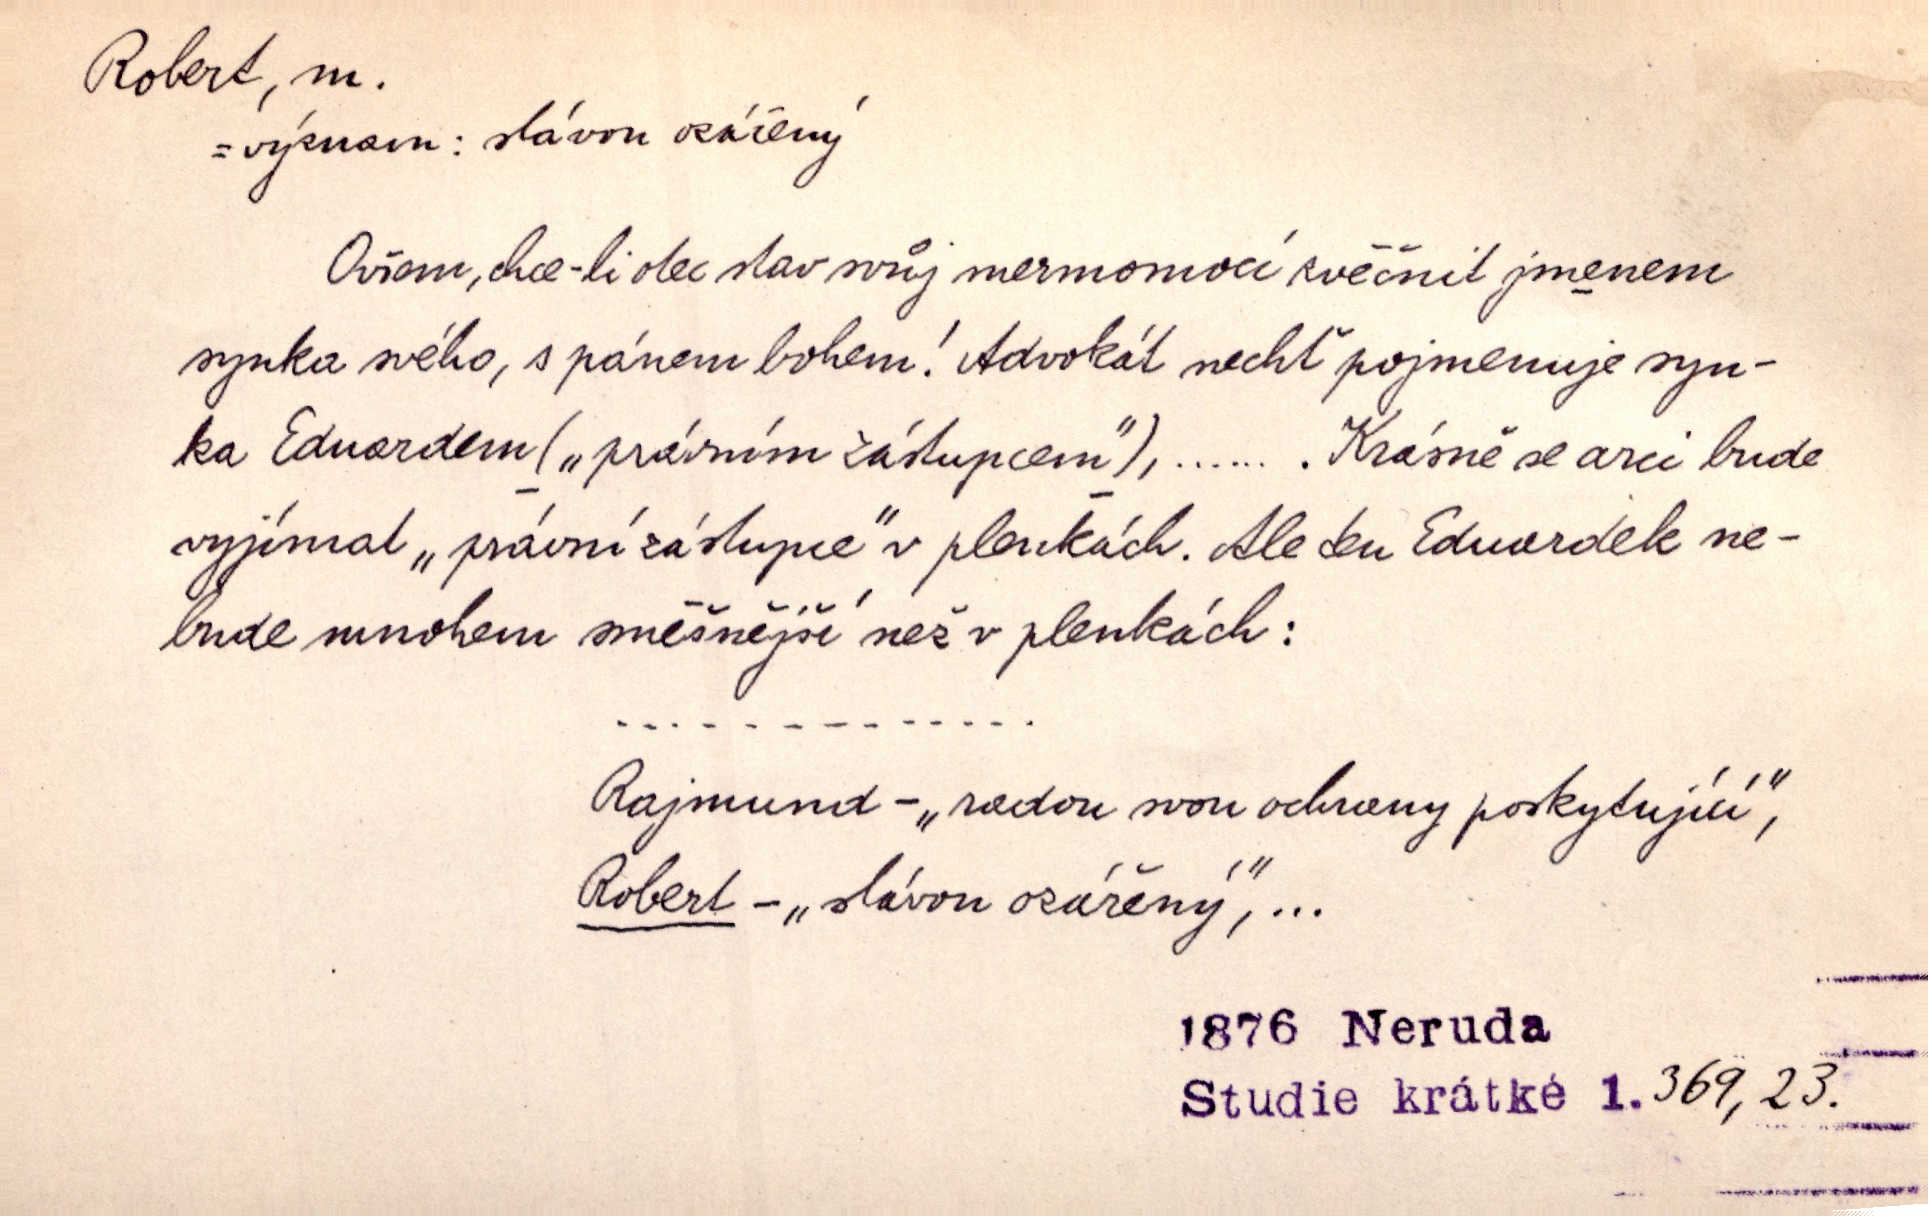 Robert, m.
= význam: slávou ozářený
Ovšem, chce-li otec stav svůj mermomocí zvěčnit jmenem
synka svého, s pánem bohem! Advokát nechť pojmenuje syn-
ka Eduardem („právním zástupcem"), ...... . Krásně se arci bude
vyjímat „právní zástupce" v plenkách. Ale ten Eduardek ne-
bude mnohem směšnější než v plenkách:
- - - - - - - - - - - - - -
Rajmund – „radou svou ochrany poskytující",
Robert – „slávou ozářený", ...
1876 Neruda
Studie krátké 1. 369, 23.